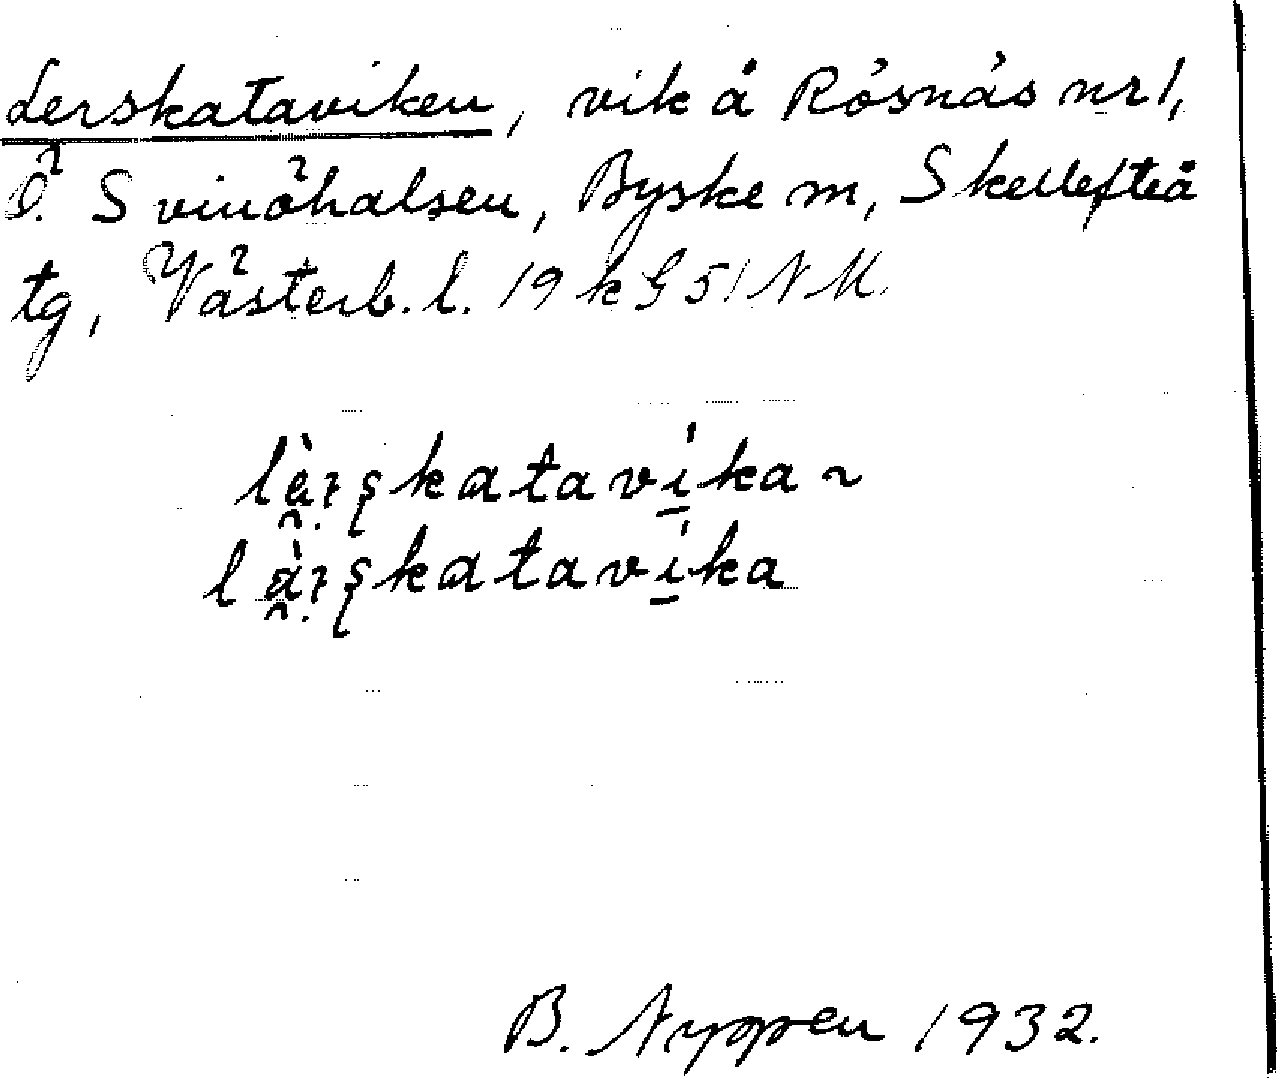 Lerskataviken, vik å Rösnäs nr 1,
Ö. Svinöhalsen, Byske sn, Skellefteå
tg, Västerb. l. 19 k G 51 N M.
lèrskatavika ~
làrskatavika
B. Nyppen 1932.